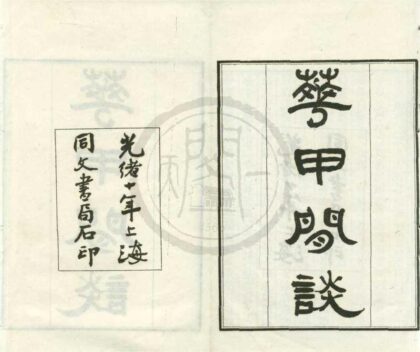 華甲閒談
光緒十年上海
同文書局石印